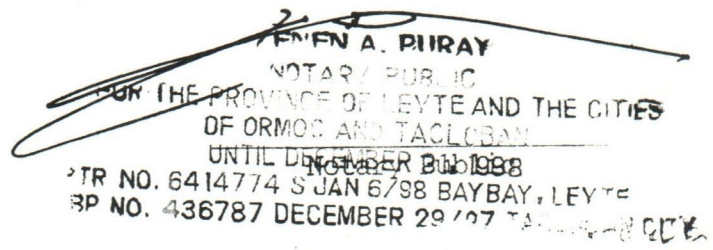 ZENEN A. PURAY
NOTARY PUBLIC
FOR THE PROVINCE OF LEYTE AND THE CITIES
OF ORMOC AND TACLOBAN
UNTIL DECEMBER 31 1998
Notary Public
PTR NO. 6414774 S JAN 6/98 BAYBAY, LEYTE
BP NO. 436787 DECEMBER 29/97